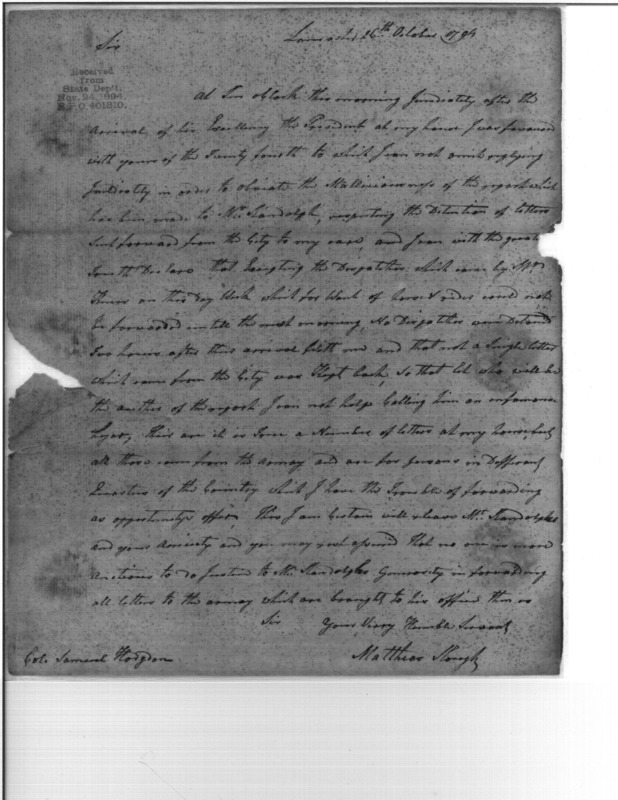 Lancaster 26th October 1794
Sir
Received
from
State Dep't.
Nov. 24, 1894.
R.&P.O 401810.
At Ten oClock this morning Jmidiately after the
Arrival of his Excellency the President at my house J was favoured
with yours of the Twenty fourth to which J can not omit replying
Jmidiately in order to obviate the Malliciousness of the report which
has bin made to Mr. Randolph, respecting the Detention of letters
Sent forward from the City to my care, and J can with the greatest
Trouth Declare that Excepting the Dispatches which came by
on this Day Week which for Want of horse & rider could not
be forwarded untill the next morning, No Dispatches were Detained
Two hours after their arrival with me and that not a Single letter
which came from the City was Kept back, so that let who will be
the author of the report J can not help Calling him an infamous
Lyar, their are it is True a Number of letters at my house, but
all those came from the army and are for persons in Different
Quarters of the Country which J have the Trouble of forwarding
as opportunitys offer, this J am Certain will releave Mr. Randolphs
and your Anxiety and you may rest assured that no one is more
anctious to do Justice to Mr. Randolphs Generosity in forwarding
all letters to the army which are brought to his office than is
Sir Your Verry Humble Servant
Col. Samuel Hodgdon
Matthias Slough